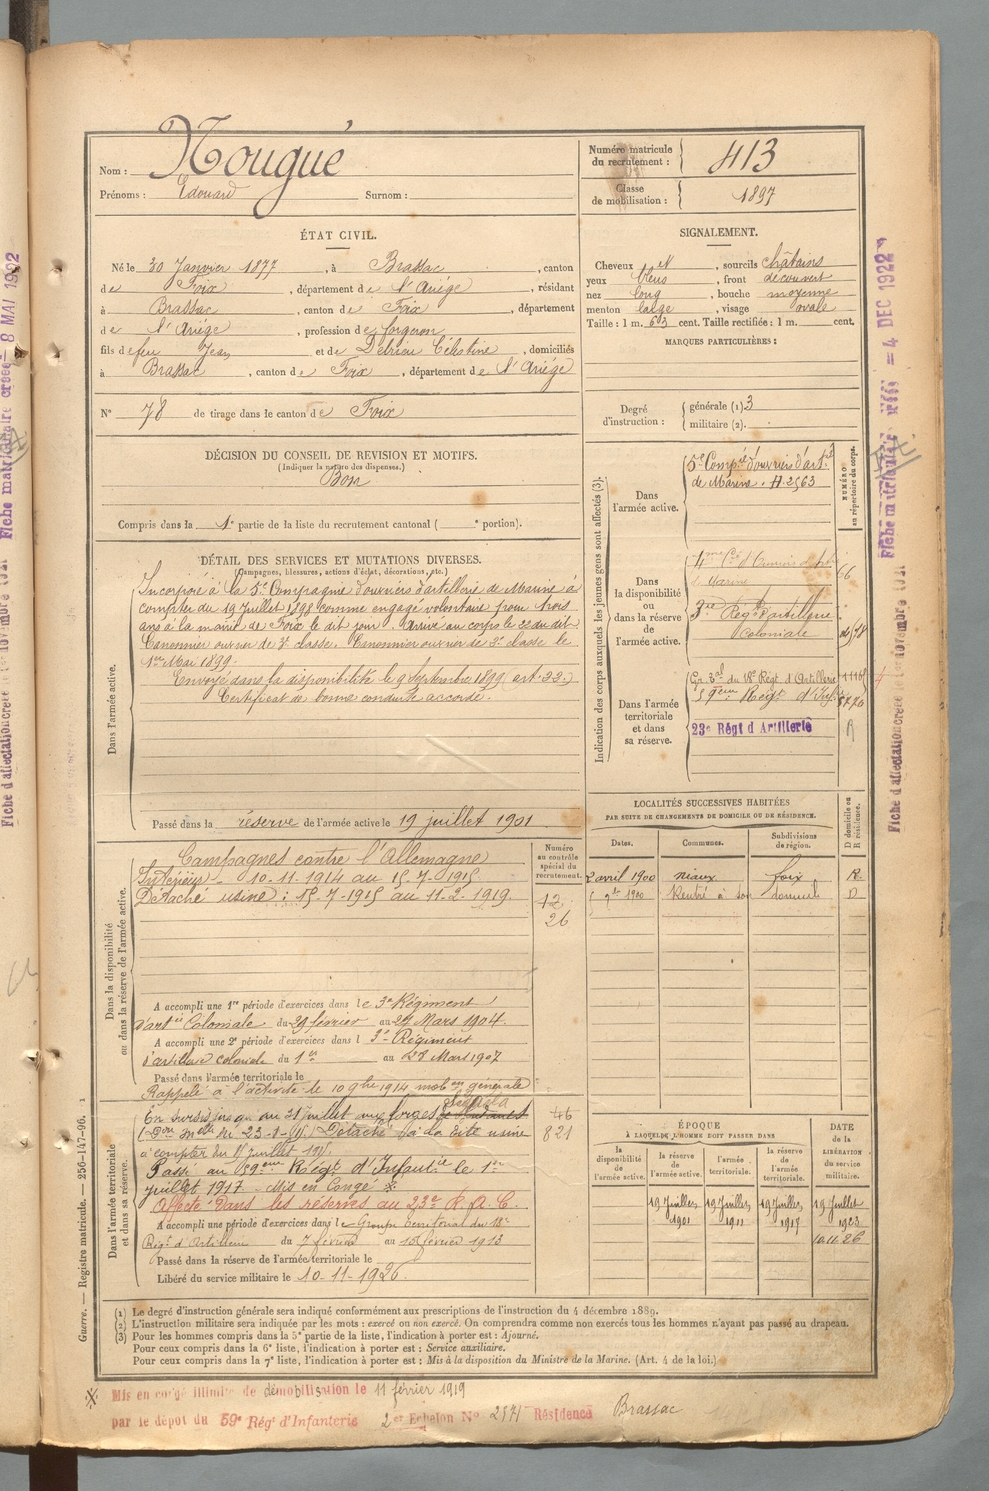 Nom : Nougué
Prénoms : Edouard Surnom :
Numéro matricule du recrutement : 413
Classe de mobilisation : 1897
ÉTAT CIVIL.
Né le 30 Janvier 1877, à Brassac, canton
de Foix, département de l'Ariège, résidant
à Brassac, canton de Foix, département
de l'Ariège, profession de forgeron
fils de feu Jean et de Delrieu Célestine, domiciliés
à Brassac, canton de Foix, département de l'Ariège
N° 78 de tirage dans le canton de Foix
SIGNALEMENT.
Cheveux et, sourcils châtains
yeux bleus, front découvert
nez long, bouche moyenne
menton large, visage ovale
Taille : 1 m. 613 cent. Taille rectifiée : 1 m. cent.
MARQUES PARTICULIÈRES :
Degré d'instruction : générale (1) 3
militaire (2).
DÉCISION DU CONSEIL DE REVISION ET MOTIFS.
(Indiquer la nature des dispenses.)
Bon
Compris dans la 1e partie de la liste du recrutement cantonal ( e portion).
DÉTAIL DES SERVICES ET MUTATIONS DIVERSES.
(Campagnes, blessures, actions d'éclat, décorations, etc.)
Dans l'armée active.
Incorporé à la 5e Compagnie d'ouvriers d'artillerie de Marine à
compter du 19 Juillet 1898 comme engagé volontaire pour trois
ans à la mairie de Foix le dit jour. Arrivé au corps le 22 du dit
Canonnier ouvrier de 3e classe. Canonnier ouvrier de 2e classe le
1er Mai 1899.
Envoyé dans la disponibilité le 9 Septembre 1899 art. 22.)
Certificat de bonne conduite accordé.
Passé dans la réserve de l'armée active le 19 juillet 1901
Indication des corps auxquels les jeunes gens sont affectés (3).
NUMÉRO au répertoire du corps.
Dans l'armée active.
5e Compie d'ouvriers d'artie
de Marine. 2563
Dans la disponibilité ou dans la réserve de l'armée active.
4me Cie d'Ouvriers d'Art
Marine 66
3me Régt d'artillerie
Coloniale
Dans l'armée territoriale et dans sa réserve.
Gr. Bal du 18e Régt d'Artillerie
59eme Régt d'Inf
23e Régt d'Artillerie
LOCALITÉS SUCCESSIVES HABITÉES
PAR SUITE DE CHANGEMENTS DE DOMICILE OU DE RÉSIDENCE.
Dates. Communes. Subdivisions de région. D domicile ou R résidence.
2 avril 1900 Niaux foix R
9bre 1900 Rentré à son domicile D
Dans la disponibilité ou dans la réserve de l'armée active.
Numéro au contrôle spécial du recrutement.
Campagnes contre l'Allemagne
Intérieur - 10-11-1914 au 15-7-1915
Détaché usine : 15-7-1915 au 11-2-1919.
12
26
A accompli une 1re période d'exercices dans le 3e Régiment
d'artie Coloniale du 29 février au 27 Mars 1904.
A accompli une 2e période d'exercices dans l 3e Régiment
d'artillerie coloniale du 1er au 28 Mars 1907
Passé dans l'armée territoriale le
Rappelé à l'activité le 10 9bre 1914 mobon générale
Dans l'armée territoriale et dans sa réserve.
46
821
En sursis jusqu'au 31 juillet aux forges
Détaché à la dite usine
à compter du 15 juillet 1915
Passé au 59eme Régt d'Infantie le 1er
juillet 1917. Mis en Congé ※
Affecté dans les réserves au 23e R.A.C.
A accompli une période d'exercices dans le Groupe territorial du 18e
Régt d'Artillerie du 7 février au 15 février 1913
Passé dans la réserve de l'armée territoriale le
Libéré du service militaire le 10-11-1926.
ÉPOQUE
À LAQUELLE L'HOMME DOIT PASSER DANS
la disponibilité de l'armée active. la réserve de l'armée active. l'armée territoriale. la réserve de l'armée territoriale.
DATE de la LIBÉRATION du service militaire.
19 Juillet 1901 19 Juillet 1911 19 Juillet 1917 19 Juillet 1923
10.11.26
(1) Le degré d'instruction générale sera indiqué conformément aux prescriptions de l'instruction du 4 décembre 1889.
(2) L'instruction militaire sera indiquée par les mots : exercé ou non exercé. On comprendra comme non exercés tous les hommes n'ayant pas passé au drapeau.
(3) Pour les hommes compris dans la 5e partie de la liste, l'indication à porter est : Ajourné.
Pour ceux compris dans la 6e liste, l'indication à porter est : Service auxiliaire.
Pour ceux compris dans la 7e liste, l'indication à porter est : Mis à la disposition du Ministre de la Marine. (Art. 4 de la loi.)
※ Mis en congé illimité de démobilisation le 11 février 1919
par le dépôt du 59e Régt d'Infanterie 2er Echelon N° 2571 Résidence Brassac
Guerre. — Registre matricule. — 256-147-96. 1
Fiche matriculaire créée 8 MAI 1922
Fiche d'affectation créée le novembre
Fiche matricule 4 DEC 1922
Fiche d'affectation créée le novembre